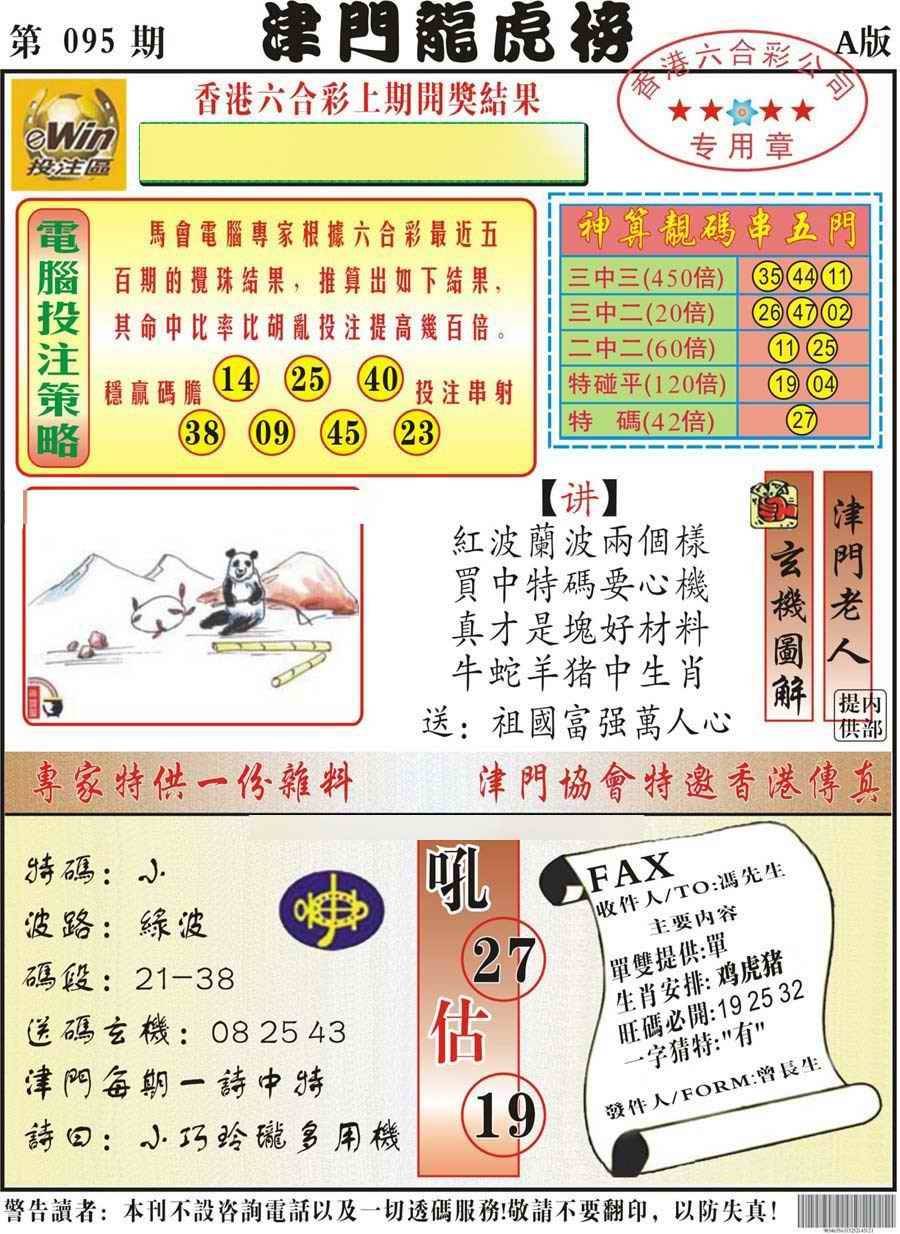 第 095 期
津門龍虎榜
A版
香港六合彩公司
专用章
eWin
投注區
香港六合彩上期開獎結果
電腦投注策略
馬會電腦專家根據六合彩最近五
百期的攪珠結果，推算出如下結果，
其命中比率比胡亂投注提高幾百倍。
穩贏碼膽 14 25 40 投注串射
38 09 45 23
神算靚碼串五門
三中三(450倍) 35 44 11
三中二(20倍) 26 47 02
二中二(60倍) 11 25
特碰平(120倍) 19 04
特 碼(42倍) 27
【讲】
紅波蘭波兩個樣
買中特碼要心機
真才是塊好材料
牛蛇羊猪中生肖
送：祖國富强萬人心
玄機圖解
津門老人
内部提供
專家特供一份雜料
津門協會特邀香港傳真
特碼：小
波路：綠波
碼段：21-38
送碼玄機：08 25 43
津門每期一詩中特
詩曰：小巧玲瓏多用機
吼
27
估
19
FAX
收件人/TO:馮先生
主要内容
單雙提供:單
生肖安排:鸡虎猪
旺碼必開:19 25 32
一字猜特:"有"
發件人/FORM:曾長生
警告讀者：本刊不設咨詢電話以及一切透碼服務!敬請不要翻印，以防失真！